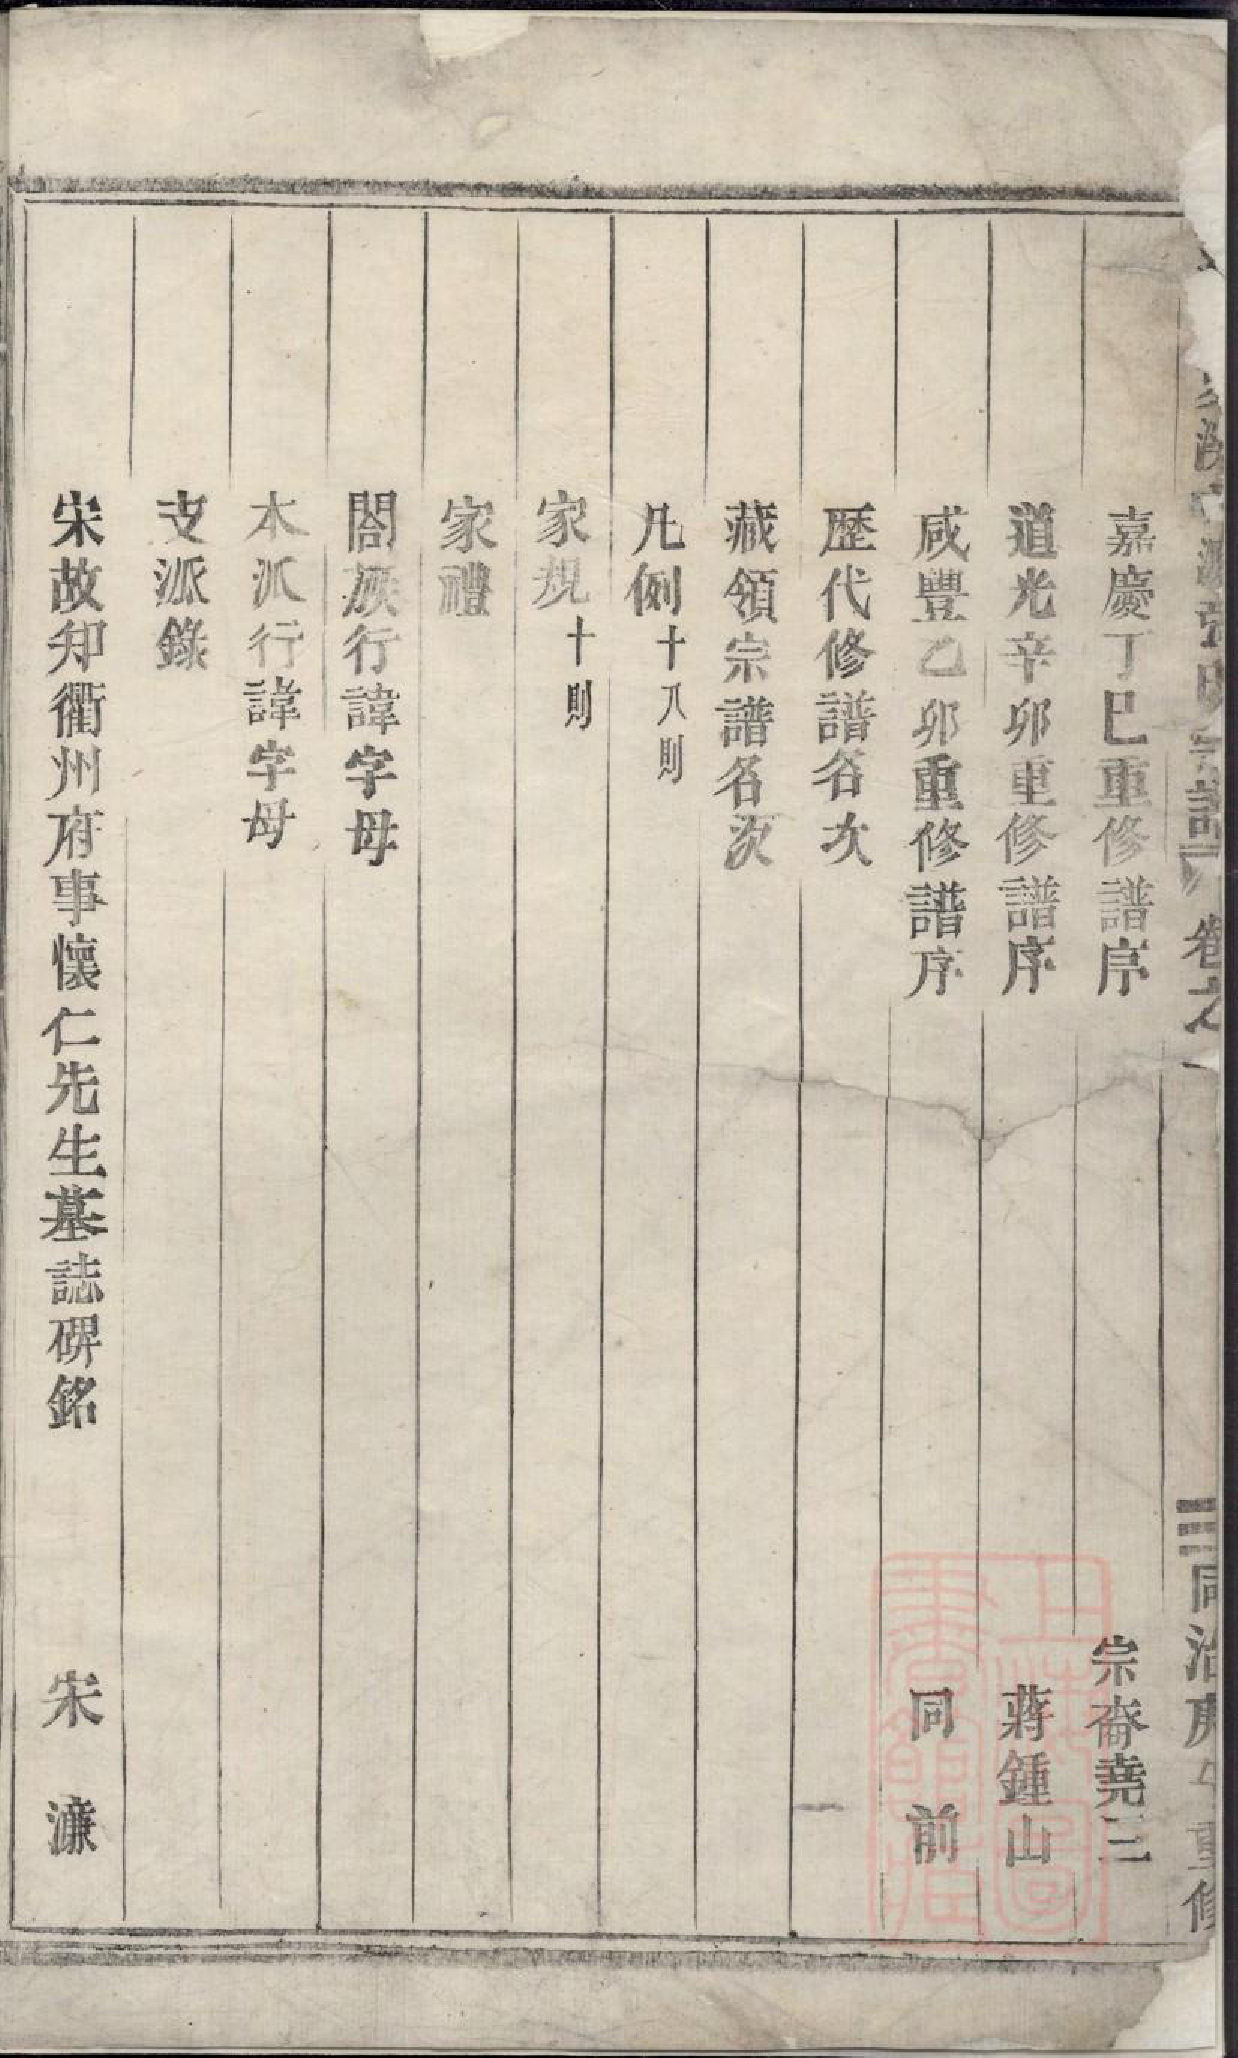 張氏宗譜 卷之一 同治庚午重修
嘉慶丁巳重修譜序 宗裔堯三
道光辛卯重修譜序 蔣鍾山
咸豐乙卯重修譜序 同前
歷代修譜名次
藏領宗譜名次
凡例十八則
家規十則
家禮
閤族行諱字母
本派行諱字母
支派錄
宋故知衢州府事懷仁先生墓誌碑銘 宋濂
上海圖書館藏